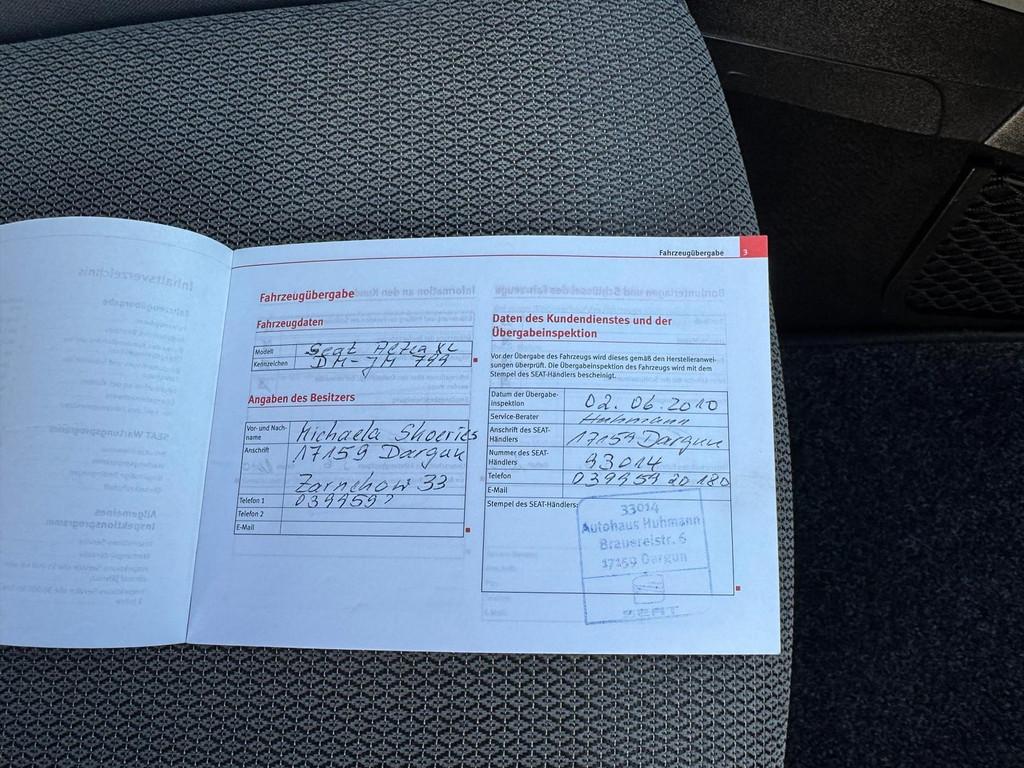 Fahrzeugübergabe 3
Inhaltsverzeichnis
Fahrzeugübergabe
Fahrzeugdaten
Modell Seat Altea XL
Kennzeichen DM-JM 799
Angaben des Besitzers
Vor- und Nach-
name
Michaela
Anschrift 17159 Dargun
Zarnekow 33
Telefon 1 0399592
Telefon 2
E-Mail
Daten des Kundendienstes und der
Übergabeinspektion
Vor der Übergabe des Fahrzeugs wird dieses gemäß den Herstelleranwei-
sungen überprüft. Die Übergabeinspektion des Fahrzeugs wird mit dem
Stempel des SEAT-Händlers bescheinigt.
Datum der Übergabe-
inspektion
02.06.2010
Service-Berater Huhmann
Anschrift des SEAT-
Händlers
17159 Dargun
Nummer des SEAT-
Händlers
33014
Telefon 039959 20180
E-Mail
Stempel des SEAT-Händlers:
33014
Autohaus Huhmann
Brauereistr. 6
17159 Dargun
SEAT